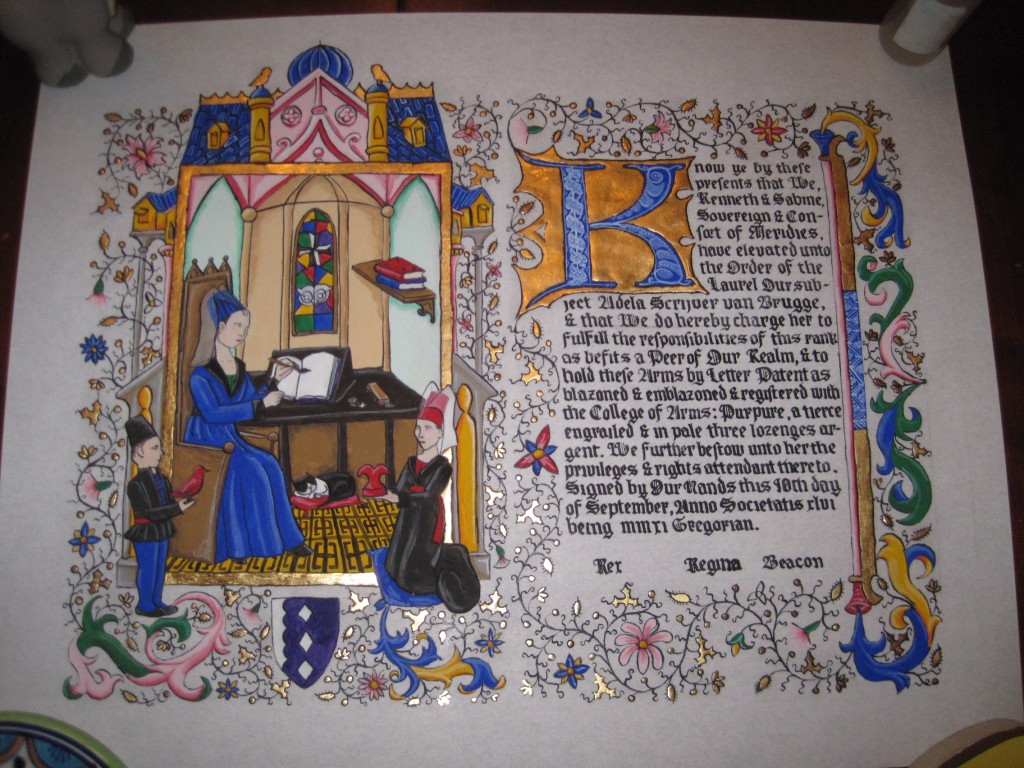 Know ye by these
presents that We,
Kenneth & Sabine,
Sovereign & Con-
sort of Meridies,
have elevated unto
the Order of the
Laurel Our sub-
ject Adela Scrijver van Brugge,
& that We do hereby charge her to
fulfull the responsibilities of this rank
as befits a Peer of Our Realm, & to
hold these Arms by Letter Patent as
blazoned & emblazoned & registered with
the College of Arms: Purpure, a tierce
engrailed & in pale three lozenges ar-
gent. We further bestow unto her the
privileges & rights attendant thereto.
Signed by Our Hands this 10th day
of September, Anno Societatis xlvi
being mmxi Gregorian.
Rex Regina Beacon